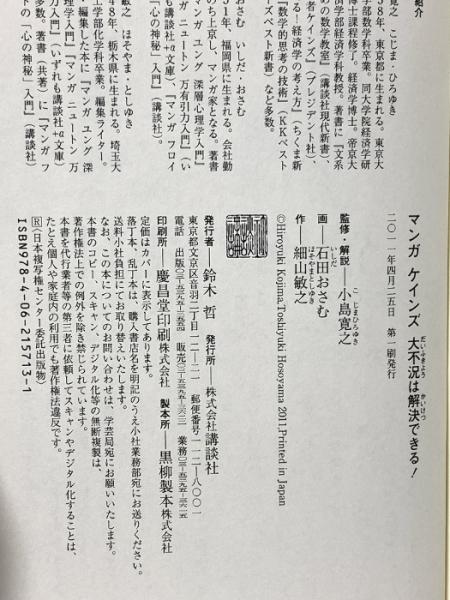 紹介
寛之　こじま・ひろゆき
58年、東京都に生まれる。東京大
学部数学科卒業。同大学院経済学研
士課程修了。経済学博士。帝京大
済学部経済学科教授。著書に『文系
の数学教室』（講談社現代新書）、
者ケインズ』（プレジデント社）、
る！経済学の考え方』（ちくま新書）、
『数学的思考の技術』（KKベスト
ーズベスト新書）など多数。
おさむ　いしだ・おさむ
51年、福岡県に生まれる。会社勤
ち上京し、マンガ家となる。著書
マンガ ユング 深層心理学入門』
ンガ ニュートン 万有引力入門』（い
も講談社+α文庫）、『マンガ フロイ
の「心の神秘」入門』（講談社）。
敏之　ほそやま・としゆき
48年、栃木県に生まれる。埼玉大
学部化学科卒業。編集ライター。
・編集した本に『マンガ ユング 深
理学入門』『マンガ ニュートン 万
力入門』（いずれも講談社+α文庫）
数。著書（共著）に『マンガ フ
トの「心の神秘」入門』（講談社）
マンガ ケインズ 大不況は解決できる！
だいふきょう かいけつ
二〇一一年四月二五日　第一刷発行
監修・解説―小島寛之
こじまひろゆき
画―石田おさむ
いしだ
作―細山敏之
ほそやまとしゆき
©Hiroyuki Kojima, Toshiyuki Hosoyama 2011, Printed in Japan
発行者―鈴木 哲　発行所―株式会社講談社
東京都文京区音羽二丁目一二―二一 郵便番号一一二―八〇〇一
電話　出版　販売　業務
印刷所―慶昌堂印刷株式会社　製本所―黒柳製本株式会社
定価はカバーに表示してあります。
落丁本、乱丁本は、購入書店名を明記のうえ小社業務部宛にお送りください。
送料小社負担にてお取り替えいたします。
なお、この本についてのお問い合わせは、学芸局宛にお願いいたします。
本書のコピー、スキャン、デジタル化等の無断複製は、
著作権法上での例外を除き禁じられています。
本書を代行業者等の第三者に依頼してスキャンやデジタル化することは、
たとえ個人や家庭内の利用でも著作権法違反です。
Ⓡ〈日本複写権センター委託出版物〉
ISBN978-4-06-215713-1